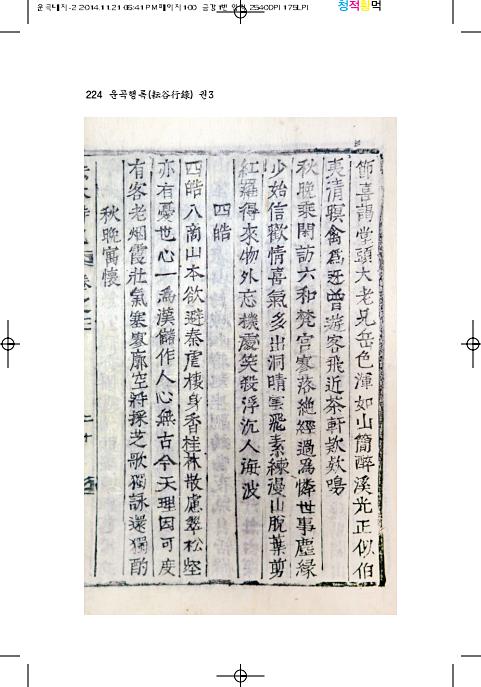 운곡내지-2 2014.11.21 05:41 PM 페이지 100
2540DPI 175LPI
청적황먹
224 운곡행록(耘谷行錄) 권3
節喜謁堂頭大老兄岳色渾如山簡醉溪光正似伯
夷清暝禽爲訝曾遊客飛近茶軒款款鳴
秋晚乘閑訪六和梵宮寥落絶經過爲憐世事塵緣
少始信歡情喜氣多出洞晴雲飛素練漫山脫葉剪
紅羅得來物外忘機處笑殺浮沉人海波
四皓
四皓入商山本欲避秦虐棲身香桂林散慮翠松壑
亦有憂世心一爲漢儲作人心無古今天理因可度
有客老烟霞壯氣塞寥廓空將採芝歌獨詠還獨酌
秋晚寓懷